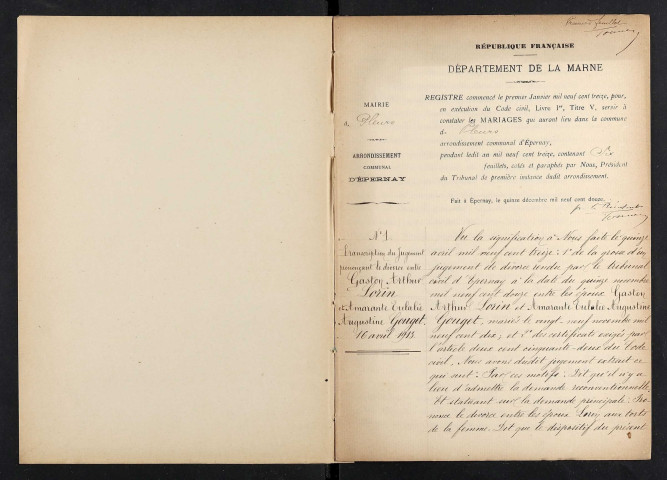 Premier feuillet
RÉPUBLIQUE FRANÇAISE
DÉPARTEMENT DE LA MARNE
MAIRIE
de Pleurs
ARRONDISSEMENT
COMMUNAL
D'ÉPERNAY
REGISTRE commencé le premier Janvier mil neuf cent treize, pour,
en exécution du Code civil, Livre Ier, Titre V, servir à
constater les MARIAGES qui auront lieu dans la commune
de Pleurs
arrondissement communal d'Épernay;
pendant ledit an mil neuf cent treize, contenant dix
feuillets, cotés et paraphés par Nous, Président
du Tribunal de première instance dudit arrondissement.
Fait à Épernay, le quinze décembre mil neuf cent douze.
pr le Président
N° 1
Transcription du Jugement
prononçant le divorce entre
Gaston Arthur
Lorin
et Amarante Eulalie
Augustine Gouget
16 avril 1913
Vu la signification à Nous faite le quinze
avril mil neuf cent treize: 1° de la grosse d'un
jugement de divorce rendu par le tribunal
civil d'Epernay à la date du quinze novembre
mil neuf cent douze entre les époux Gaston
Arthur Lorin et Amarante Eulalie Augustine
Gouget, mariés le vingt-neuf novembre mil
neuf cent dix; et 2° des certificats exigés par
l'article deux cent cinquante-deux du Code
civil, Nous avons dudit jugement extrait ce
qui suit: Par ces motifs: Dit qu'il n'y a
lieu d'admettre la demande reconventionnelle.
Et statuant sur la demande principale: Pro-
nonce le divorce entre les époux Lorin aux torts
de la femme. Dit que le dispositif du présent